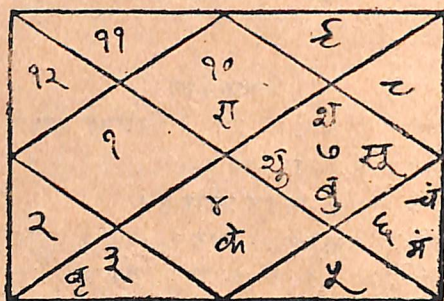 ११
१२
१०
रा
९
८
१
श
शु ७ सू
बु
२
४
के
चं
६ मं
बृ ३
५